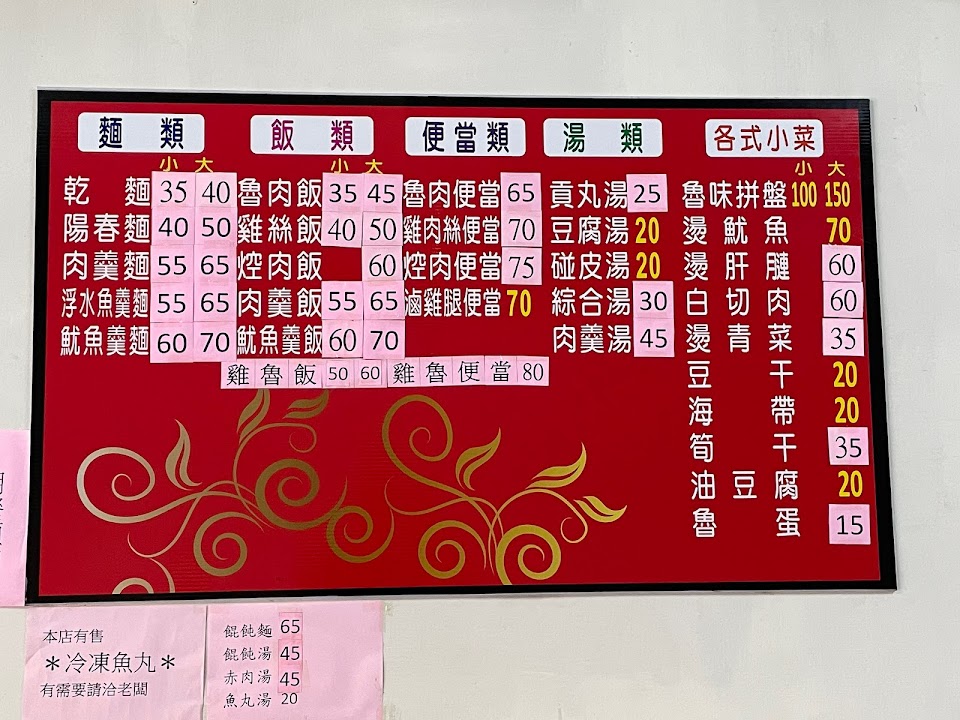 麵 類
小 大
乾 麵 35 40
陽春麵 40 50
肉羹麵 55 65
浮水魚羹麵 55 65
魷魚羹麵 60 70
飯 類
小 大
魯肉飯 35 45
雞絲飯 40 50
焢肉飯 60
肉羹飯 55 65
魷魚羹飯 60 70
便當類
魯肉便當 65
雞肉絲便當 70
焢肉便當 75
滷雞腿便當 70
雞魯飯 50 60 雞魯便當 80
湯 類
貢丸湯 25
豆腐湯 20
碰皮湯 20
綜合湯 30
肉羹湯 45
各式小菜
小 大
魯味拼盤 100 150
燙魷魚 70
燙肝腱 60
白切肉 60
燙青菜 35
豆干 20
海帶 20
筍干 35
油豆腐 20
魯蛋 15
本店有售
＊冷凍魚丸＊
有需要請洽老闆
餛飩麵 65
餛飩湯 45
赤肉湯 45
魚丸湯 20